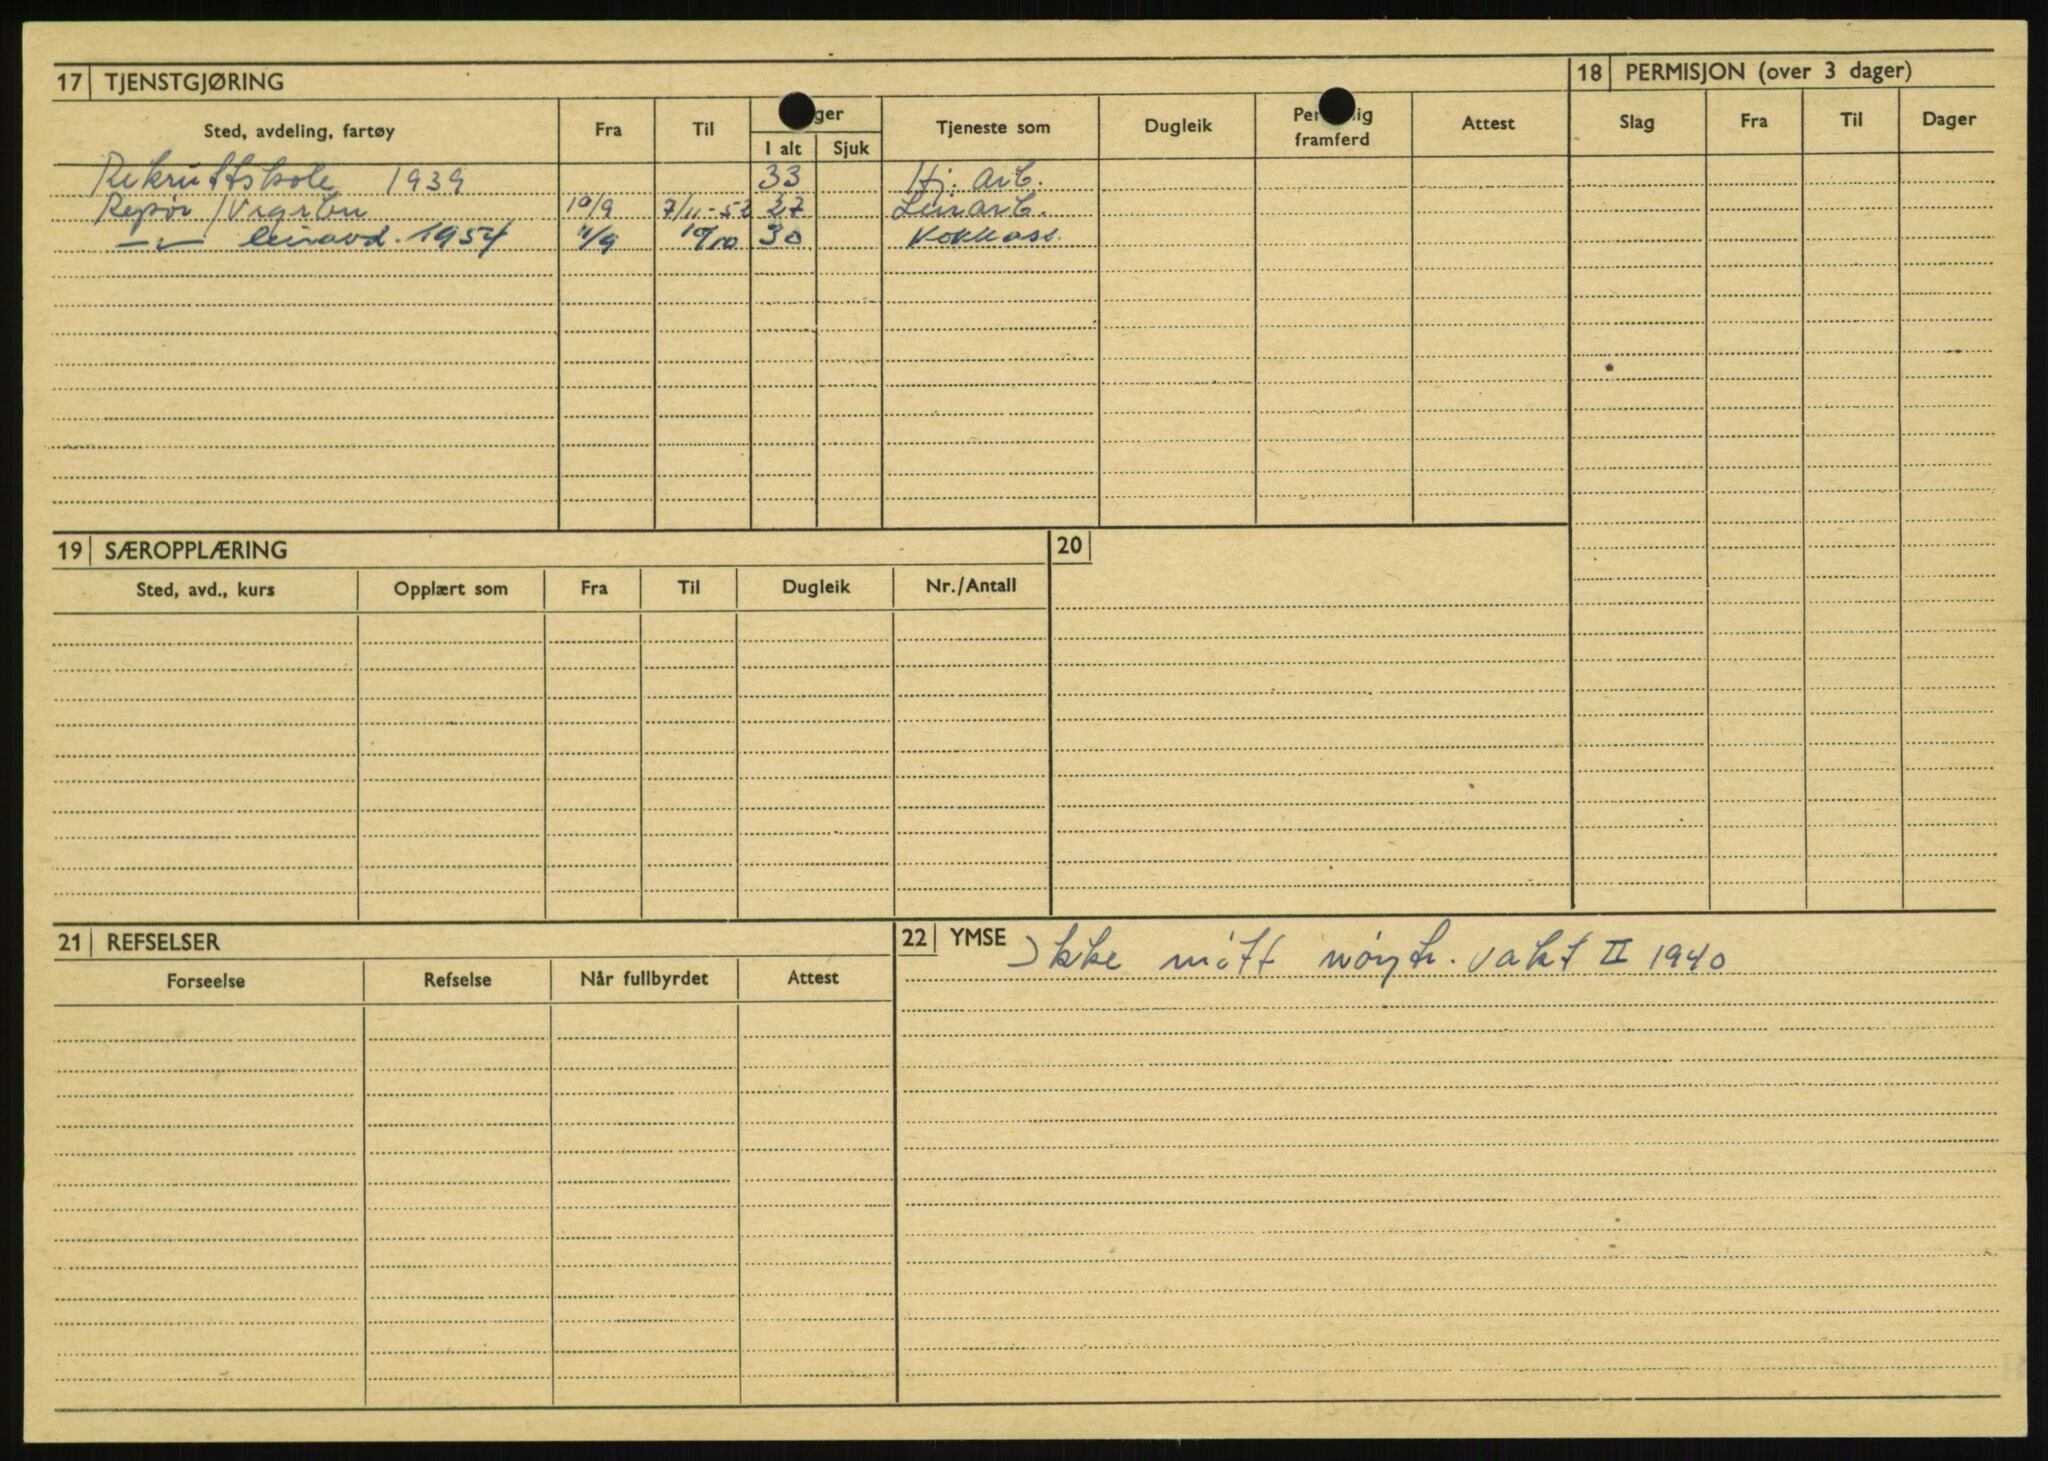 17 TJENSTGJØRING
18 PERMISJON (over 3 dager)
Sted, avdeling, fartøy Fra Til ger Tjeneste som Dugleik Per lig framferd Attest Slag Fra Til Dager
I alt Sjuk
Rekruttskole 1939 33 Hj. arb.
Repøv 10/9 7/11-52 27 Leirarb.
—"— leiravd. 1954 11/9 10/10 30 Kokkass.
19 SÆROPPLÆRING
20
Sted, avd., kurs Opplært som Fra Til Dugleik Nr./Antall
21 REFSELSER
22 YMSE Ikke møtt nøytr. vakt II 1940
Forseelse Refselse Når fullbyrdet Attest